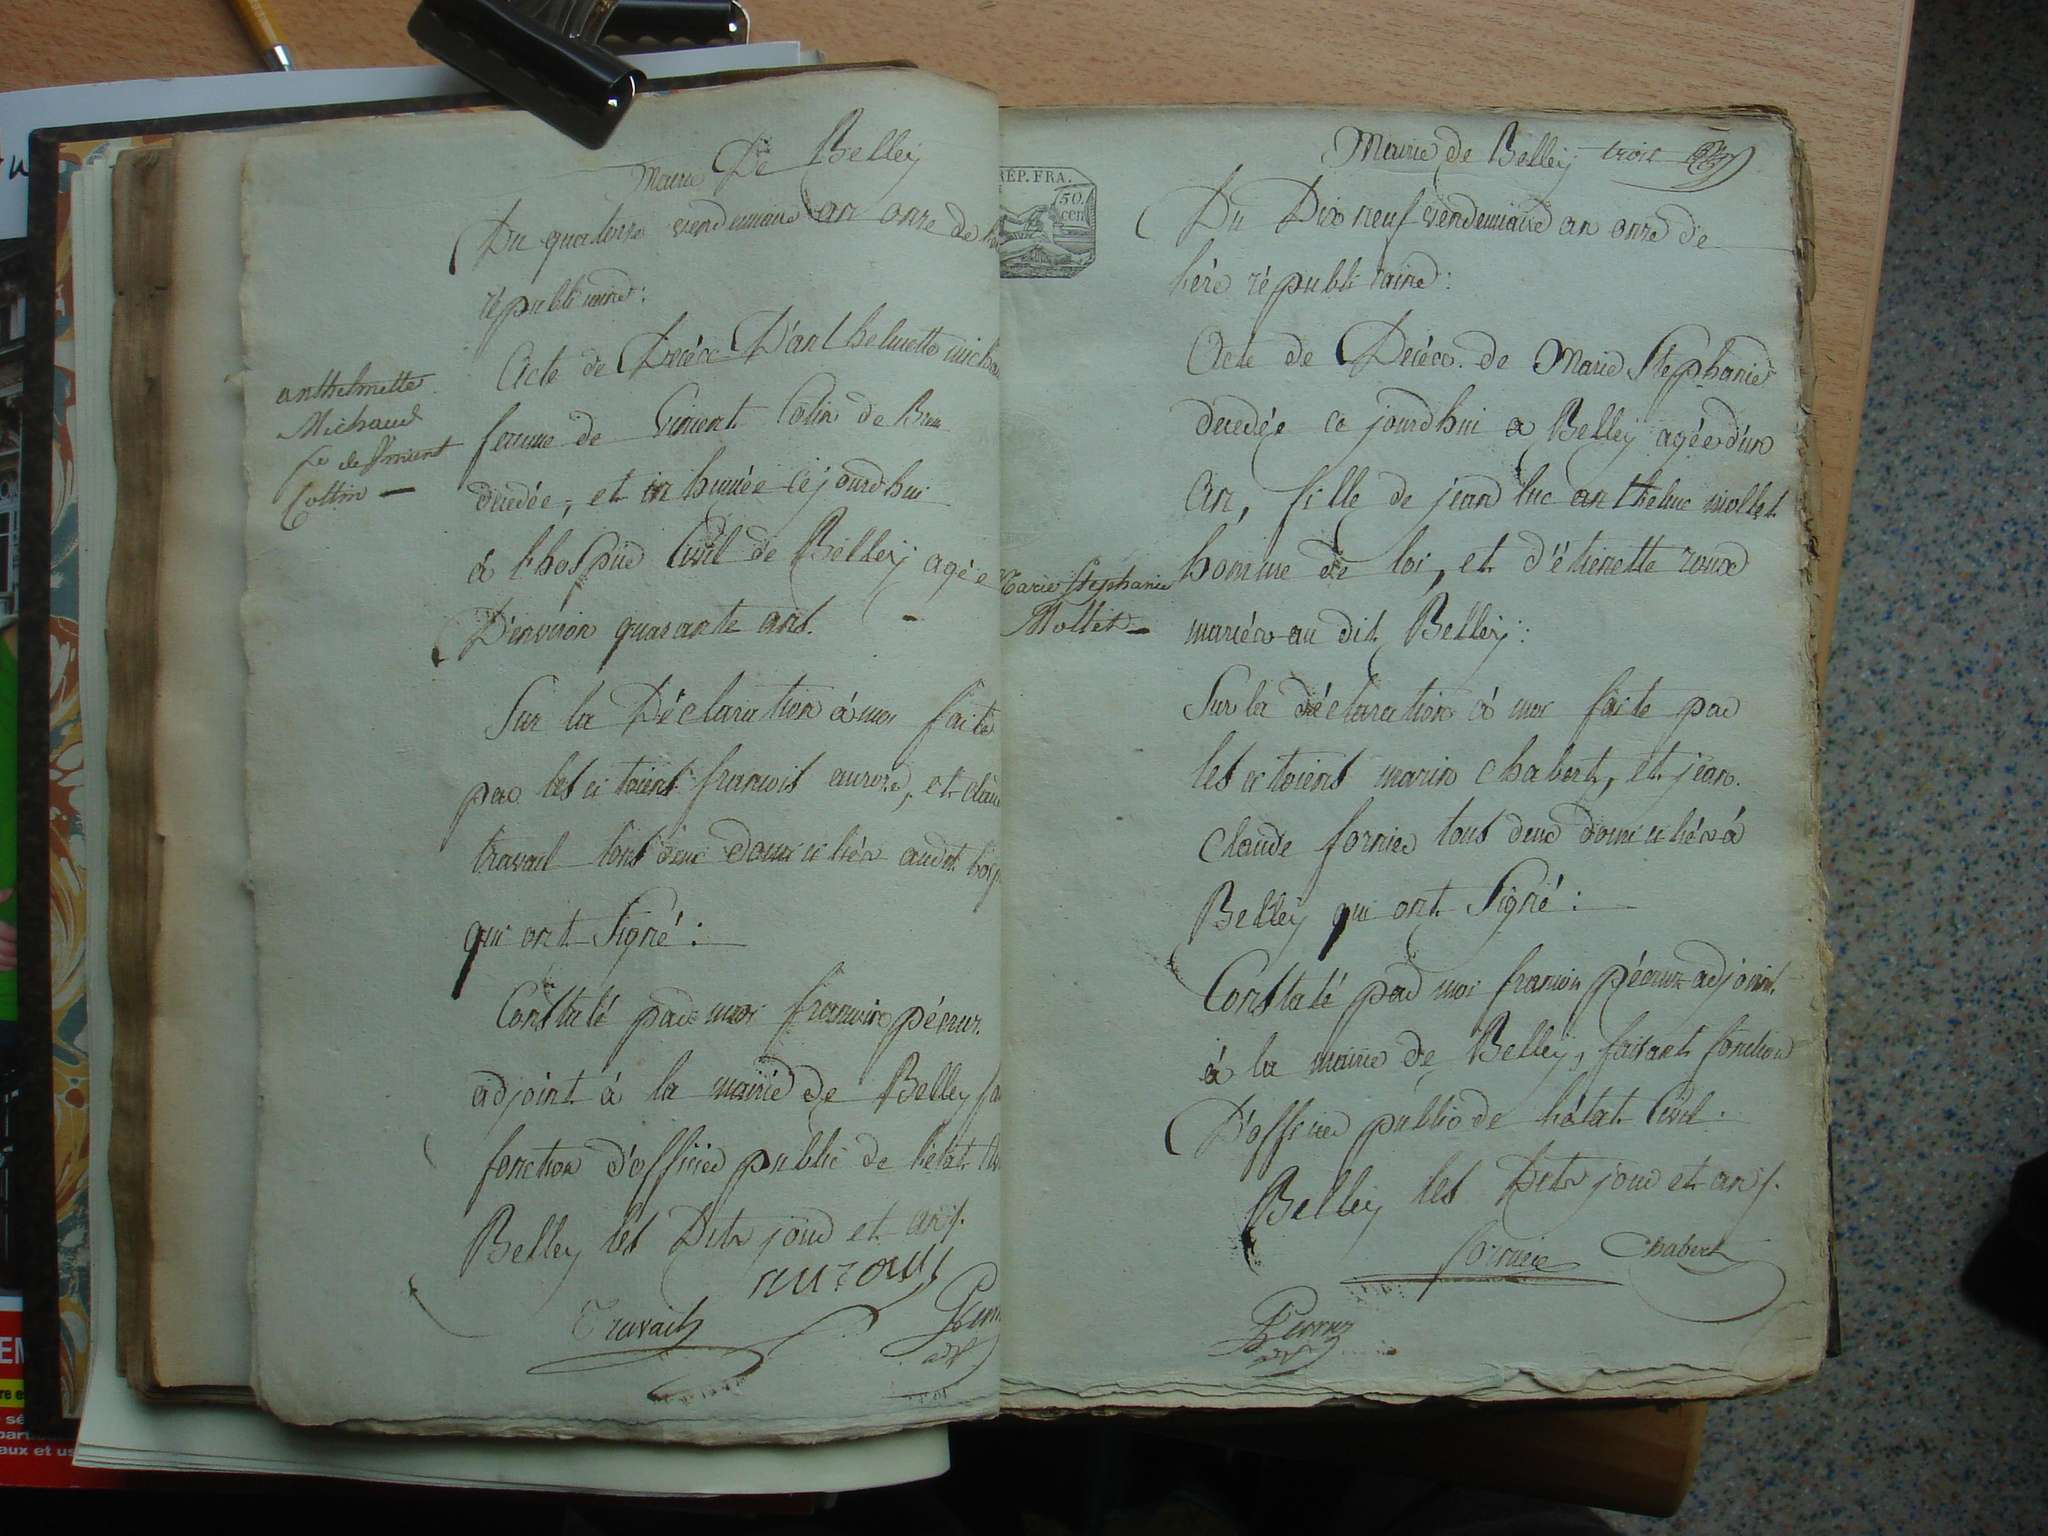 Mairie De Belley
Du quatorze vendemiaire an onze de
républicaine:
Acte de Décéx D'anthelmette micha
femme de Vincent Colin de
décedée, et in humée cejourdhui
à lhospice Civil de Belleÿ agée
D'environ quarante ans. -
Sur la Déclaration à moi faite
par les citoiens francois aurore, et clau
travail tous deux domiciliés audit hosp
qui ont Signé:
Constaté par moi francois pécruz
adjoint à la mairie de Belley fa
fonction d'officier public de létat Civ
Belley les Dits jour et an/.
anthelmette
Michaud
fe de Vincent
Collin -
Travail
REP. FRA.
50.
cen
Mairie de Belleÿ trois
Du Dix neuf vendemiaire an onze de
lére républicaine:
Acte de Décéx de Marie Stephanie
décedée ce jourdhui a Belleÿ agée d'un
an, fille de jean luc anthelme mollet
homme de loi, et d'étienette roux
mariés au dit Belleÿ:
Sur la déclaration à moi faite par
les citoiens marin Chabert, et jean
Claude fornier tous deux domiciliés à
Belleÿ qui ont Signé:
Constaté par moi francois pécruz adjoint
à la mairie de Belleÿ, faisant fonction
D'officier public de létat Civil.
Belleÿ les Dits jour et an/.
Marie Stephanie
Mollet -
fornier Chabert